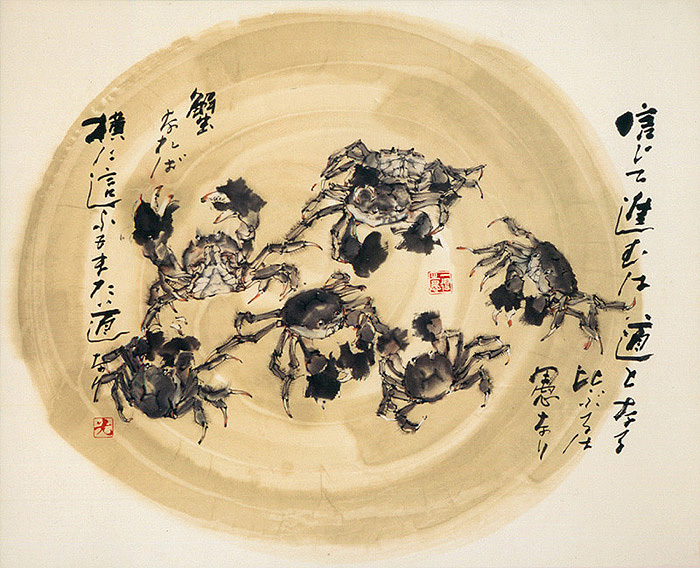 信じて進むは道となる
比ぶるは
愚なり
蟹
なれば
横に這ふもまた道なり
光